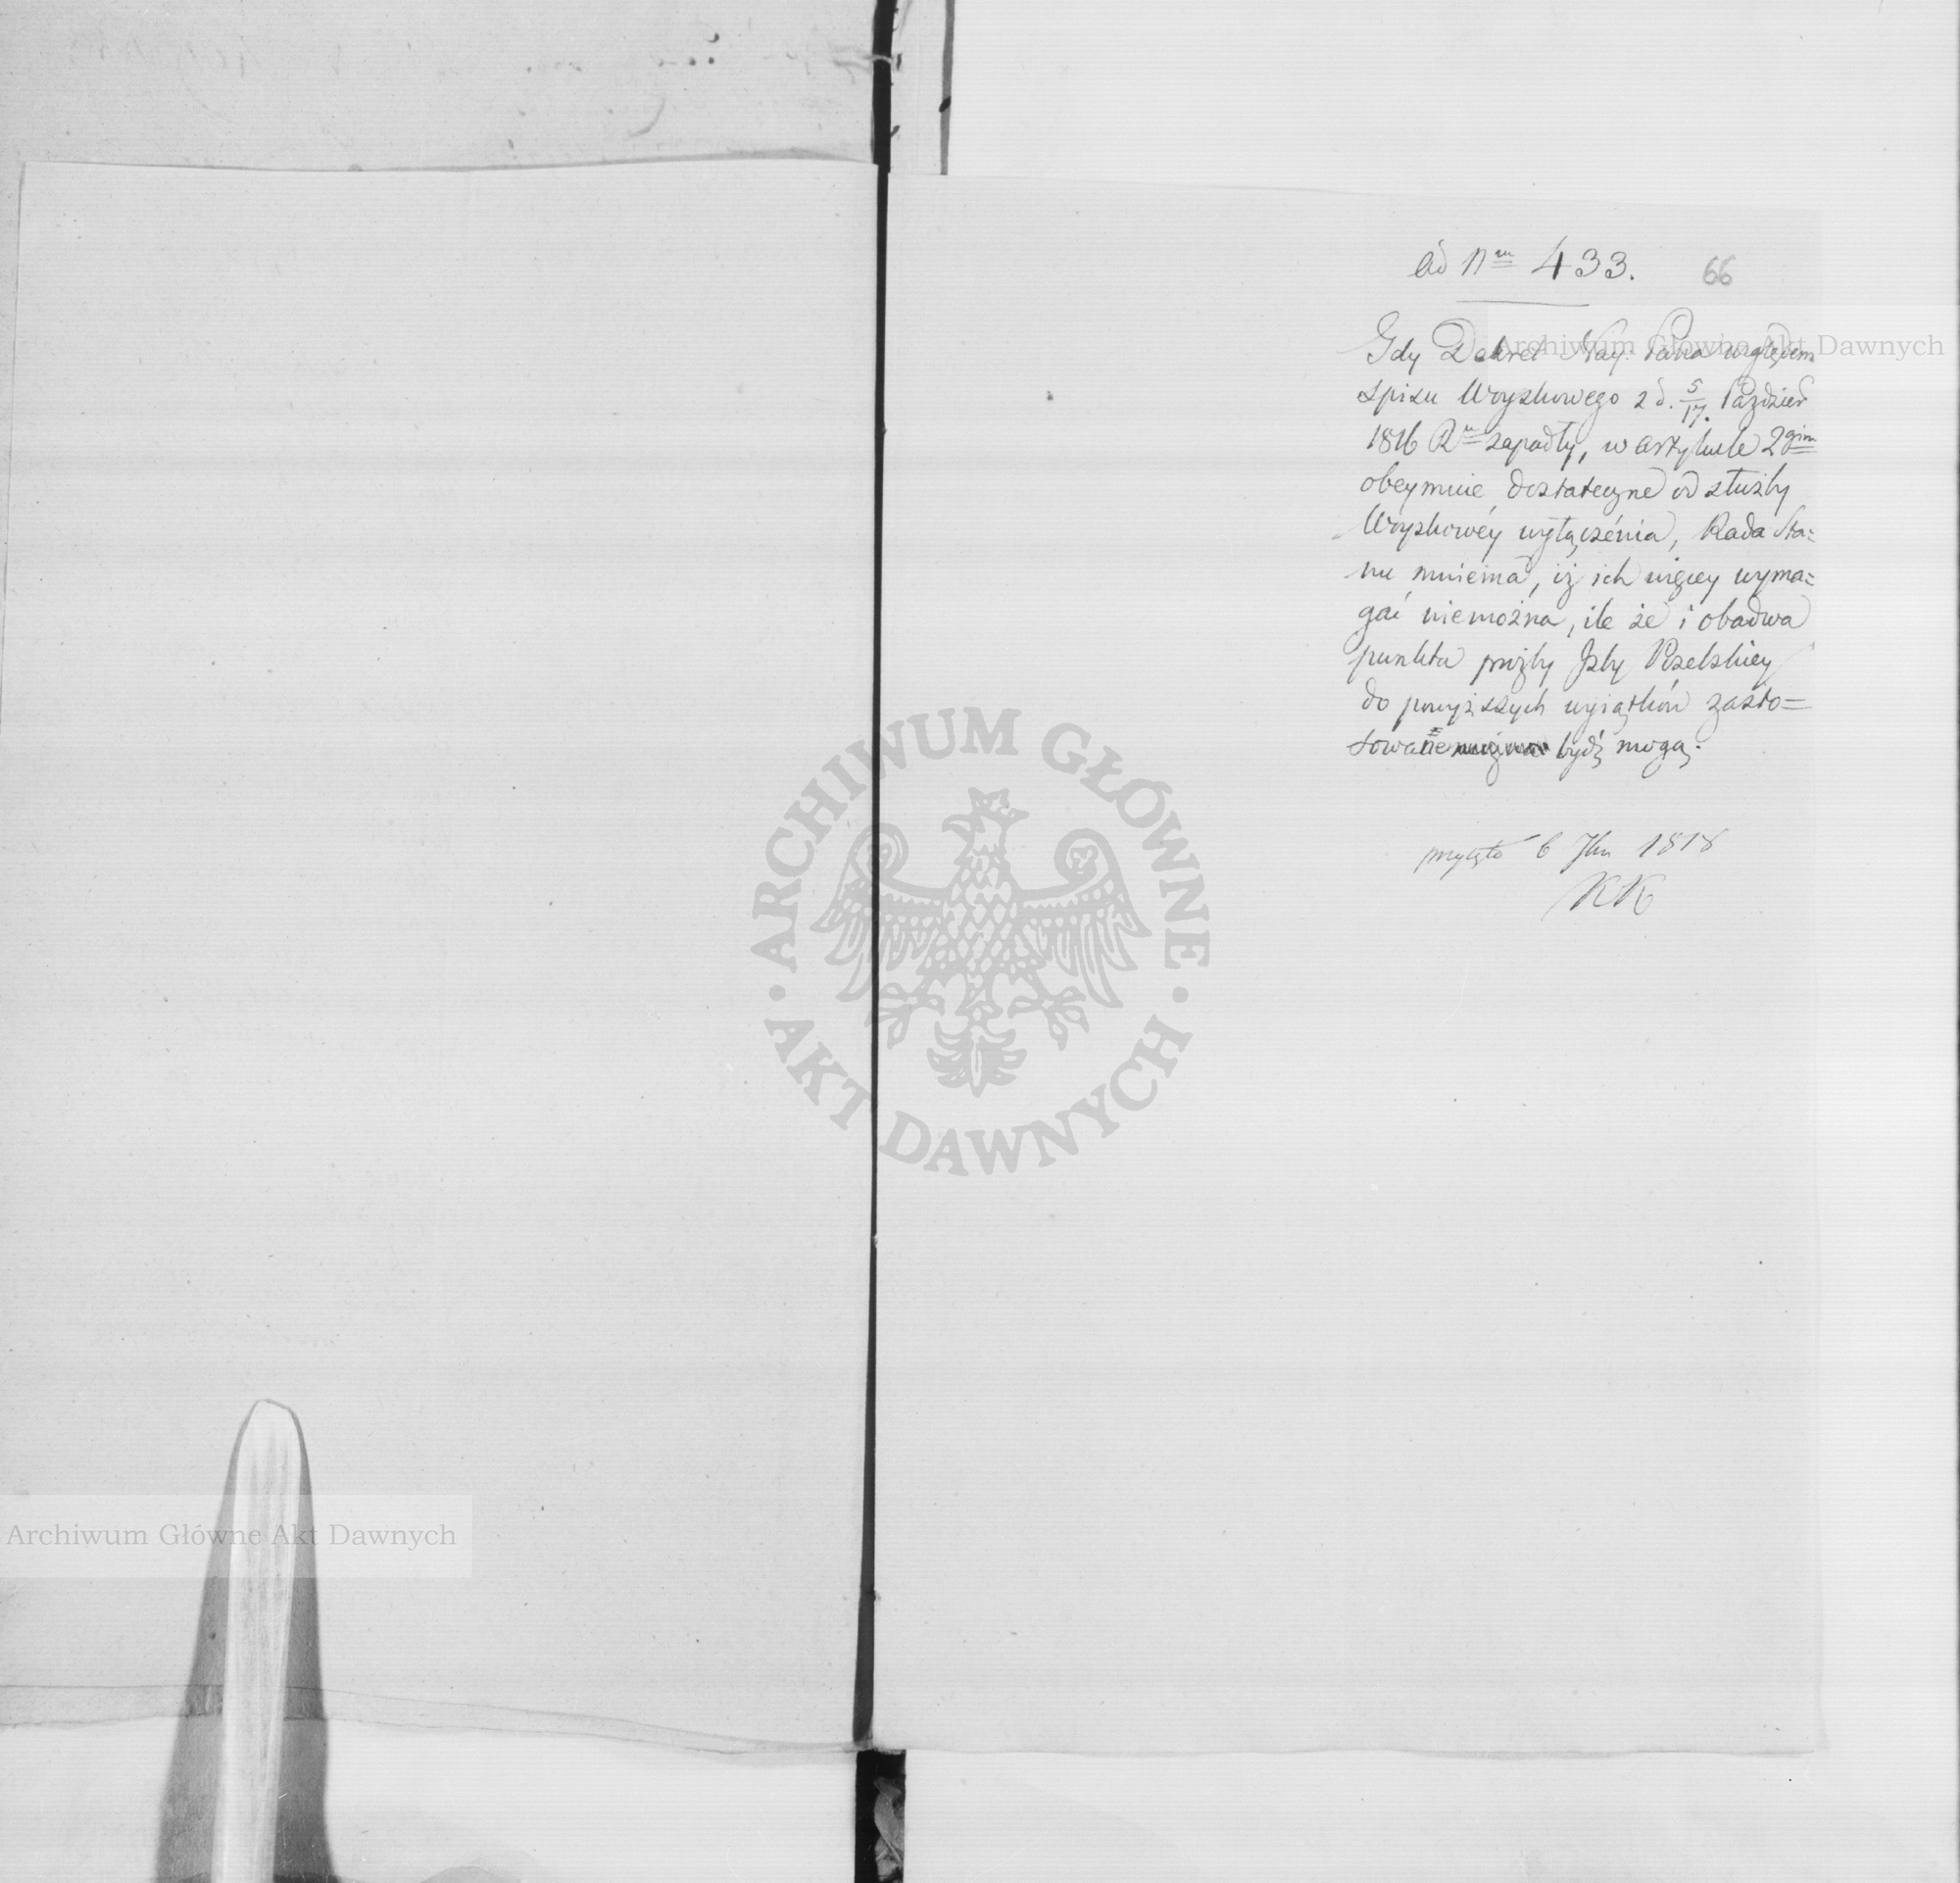 ad Nm 433.
66
Gdy Dekret Nay: Pana względem
spisu Woyskowego z d. 5/17. Paździer
1816 Ru zapadły, w artykule 2gim
obeymuie dostateczne od służby
Woyskowéy wyłączénia, Rada Sta=
nu mniema, iż ich więcey wyma=
gać niemożna, ile że i obadwa
punkta proźby Izby Poselskiey
do powyższych wyiątków zasto=
sowane bydź mogą.
przyięto 6 1818
KK
Archiwum Główne Akt Dawnych
ARCHIWUM GŁÓWNE AKT DAWNYCH
Archiwum Główne Akt Dawnych